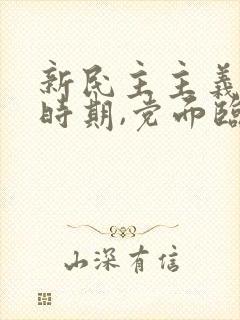 新民主主義
時期,党而臨
山深有信